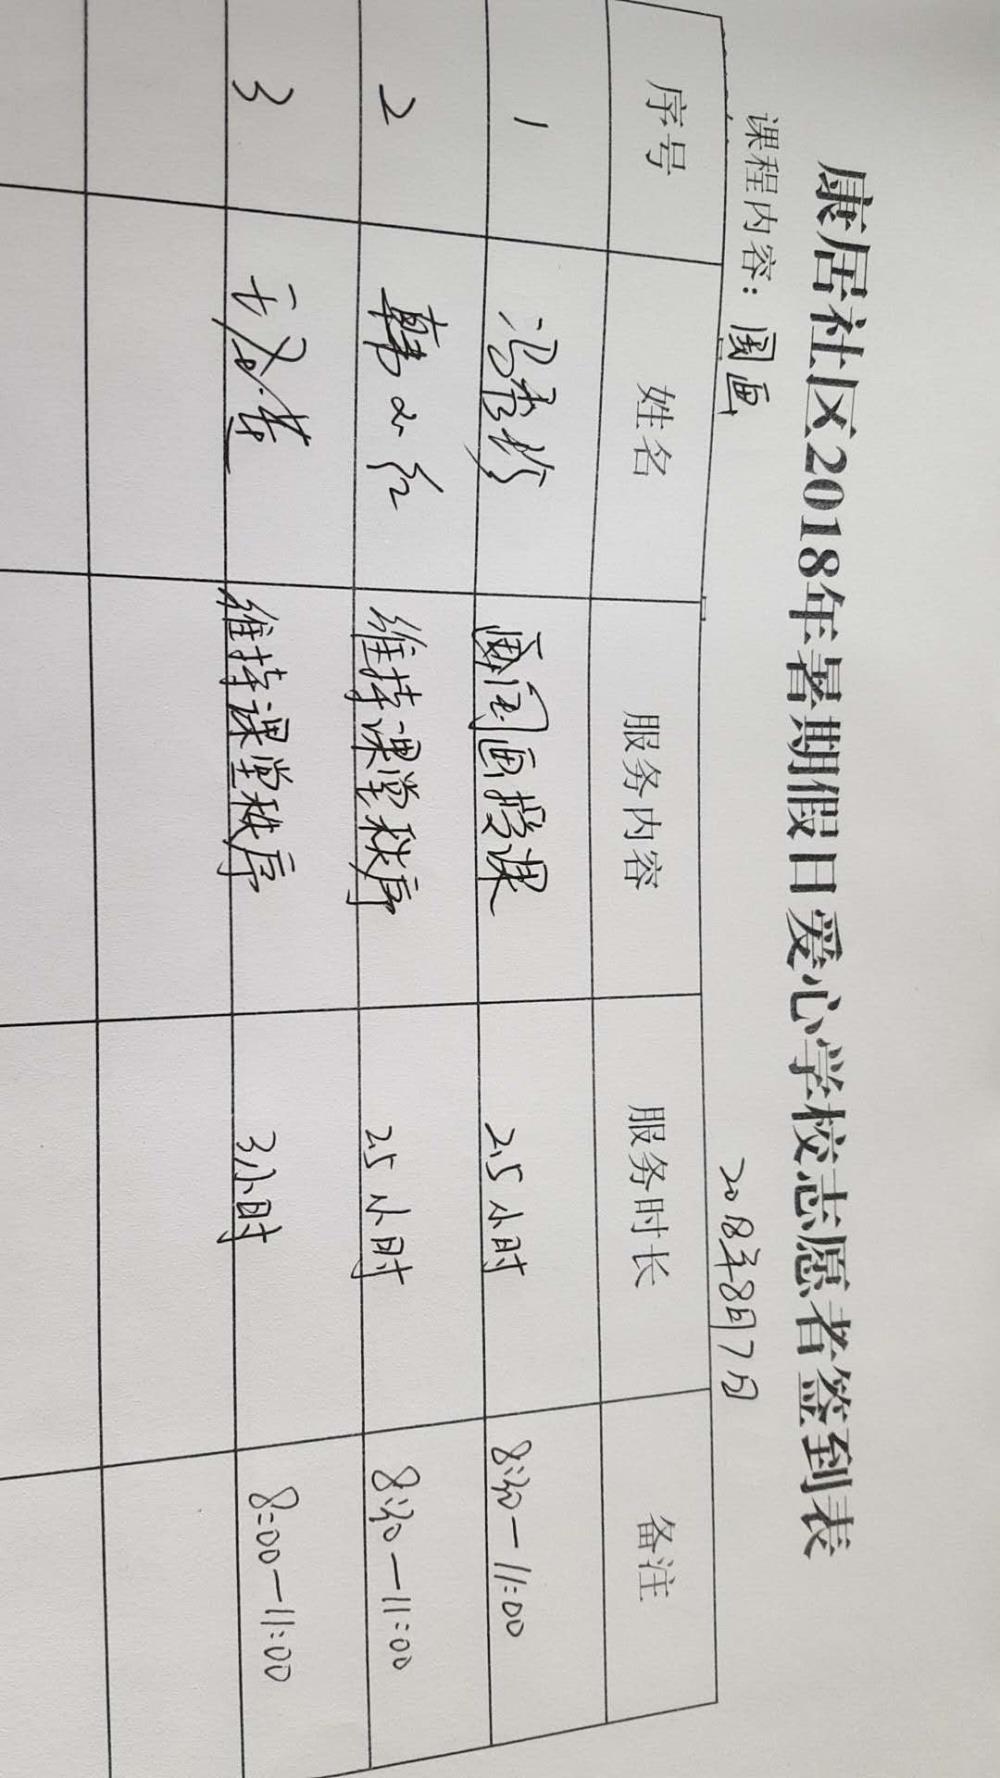 康居社区2018年暑期假日爱心学校志愿者签到表
课程内容：国画 2018年8月7日
序号 姓名 服务内容 服务时长 备注
1 国画授课 2.5小时 8:30—11:00
2 韩小红 维持课堂秩序 2.5小时 8:30—11:00
3 维持课堂秩序 3小时 8:00—11:00